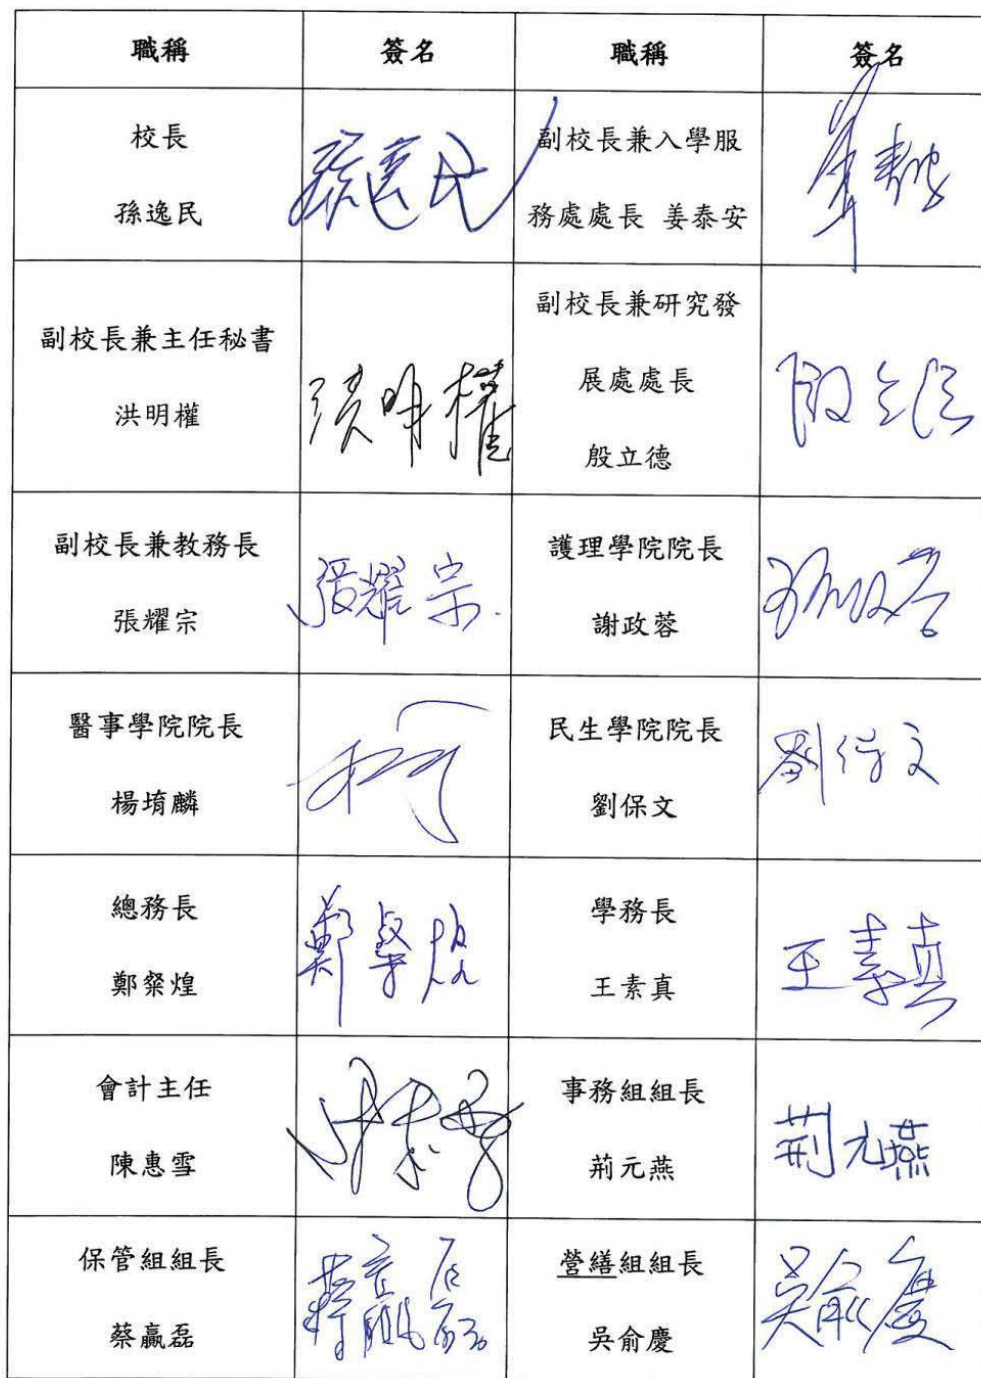 職稱 簽名 職稱 簽名
校長
孫逸民
孫逸民
副校長兼入學服
務處處長 姜泰安
副校長兼主任秘書
洪明權
洪明權
副校長兼研究發
展處處長
殷立德
殷立德
副校長兼教務長
張耀宗
張耀宗
護理學院院長
謝政蓉
醫事學院院長
楊堉麟
民生學院院長
劉保文
劉保文
總務長
鄭粲煌
鄭粲煌
學務長
王素真
王素真
會計主任
陳惠雪
事務組組長
荊元燕
荊元燕
保管組組長
蔡贏磊
蔡贏磊
營繕組組長
吳俞慶
吳俞慶